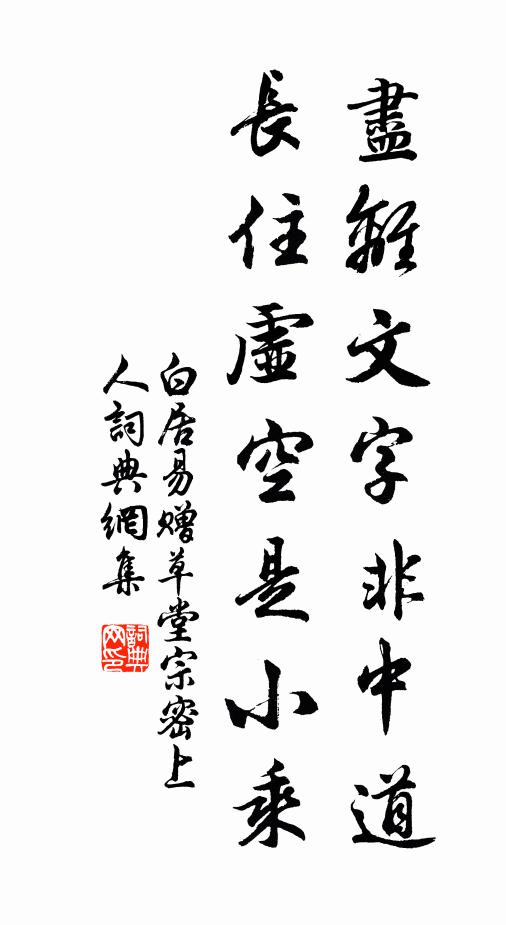 盡離文字非中道
長住虛空是小乘
白居易贈草堂宗密上
人詞典網集
詞典
网印